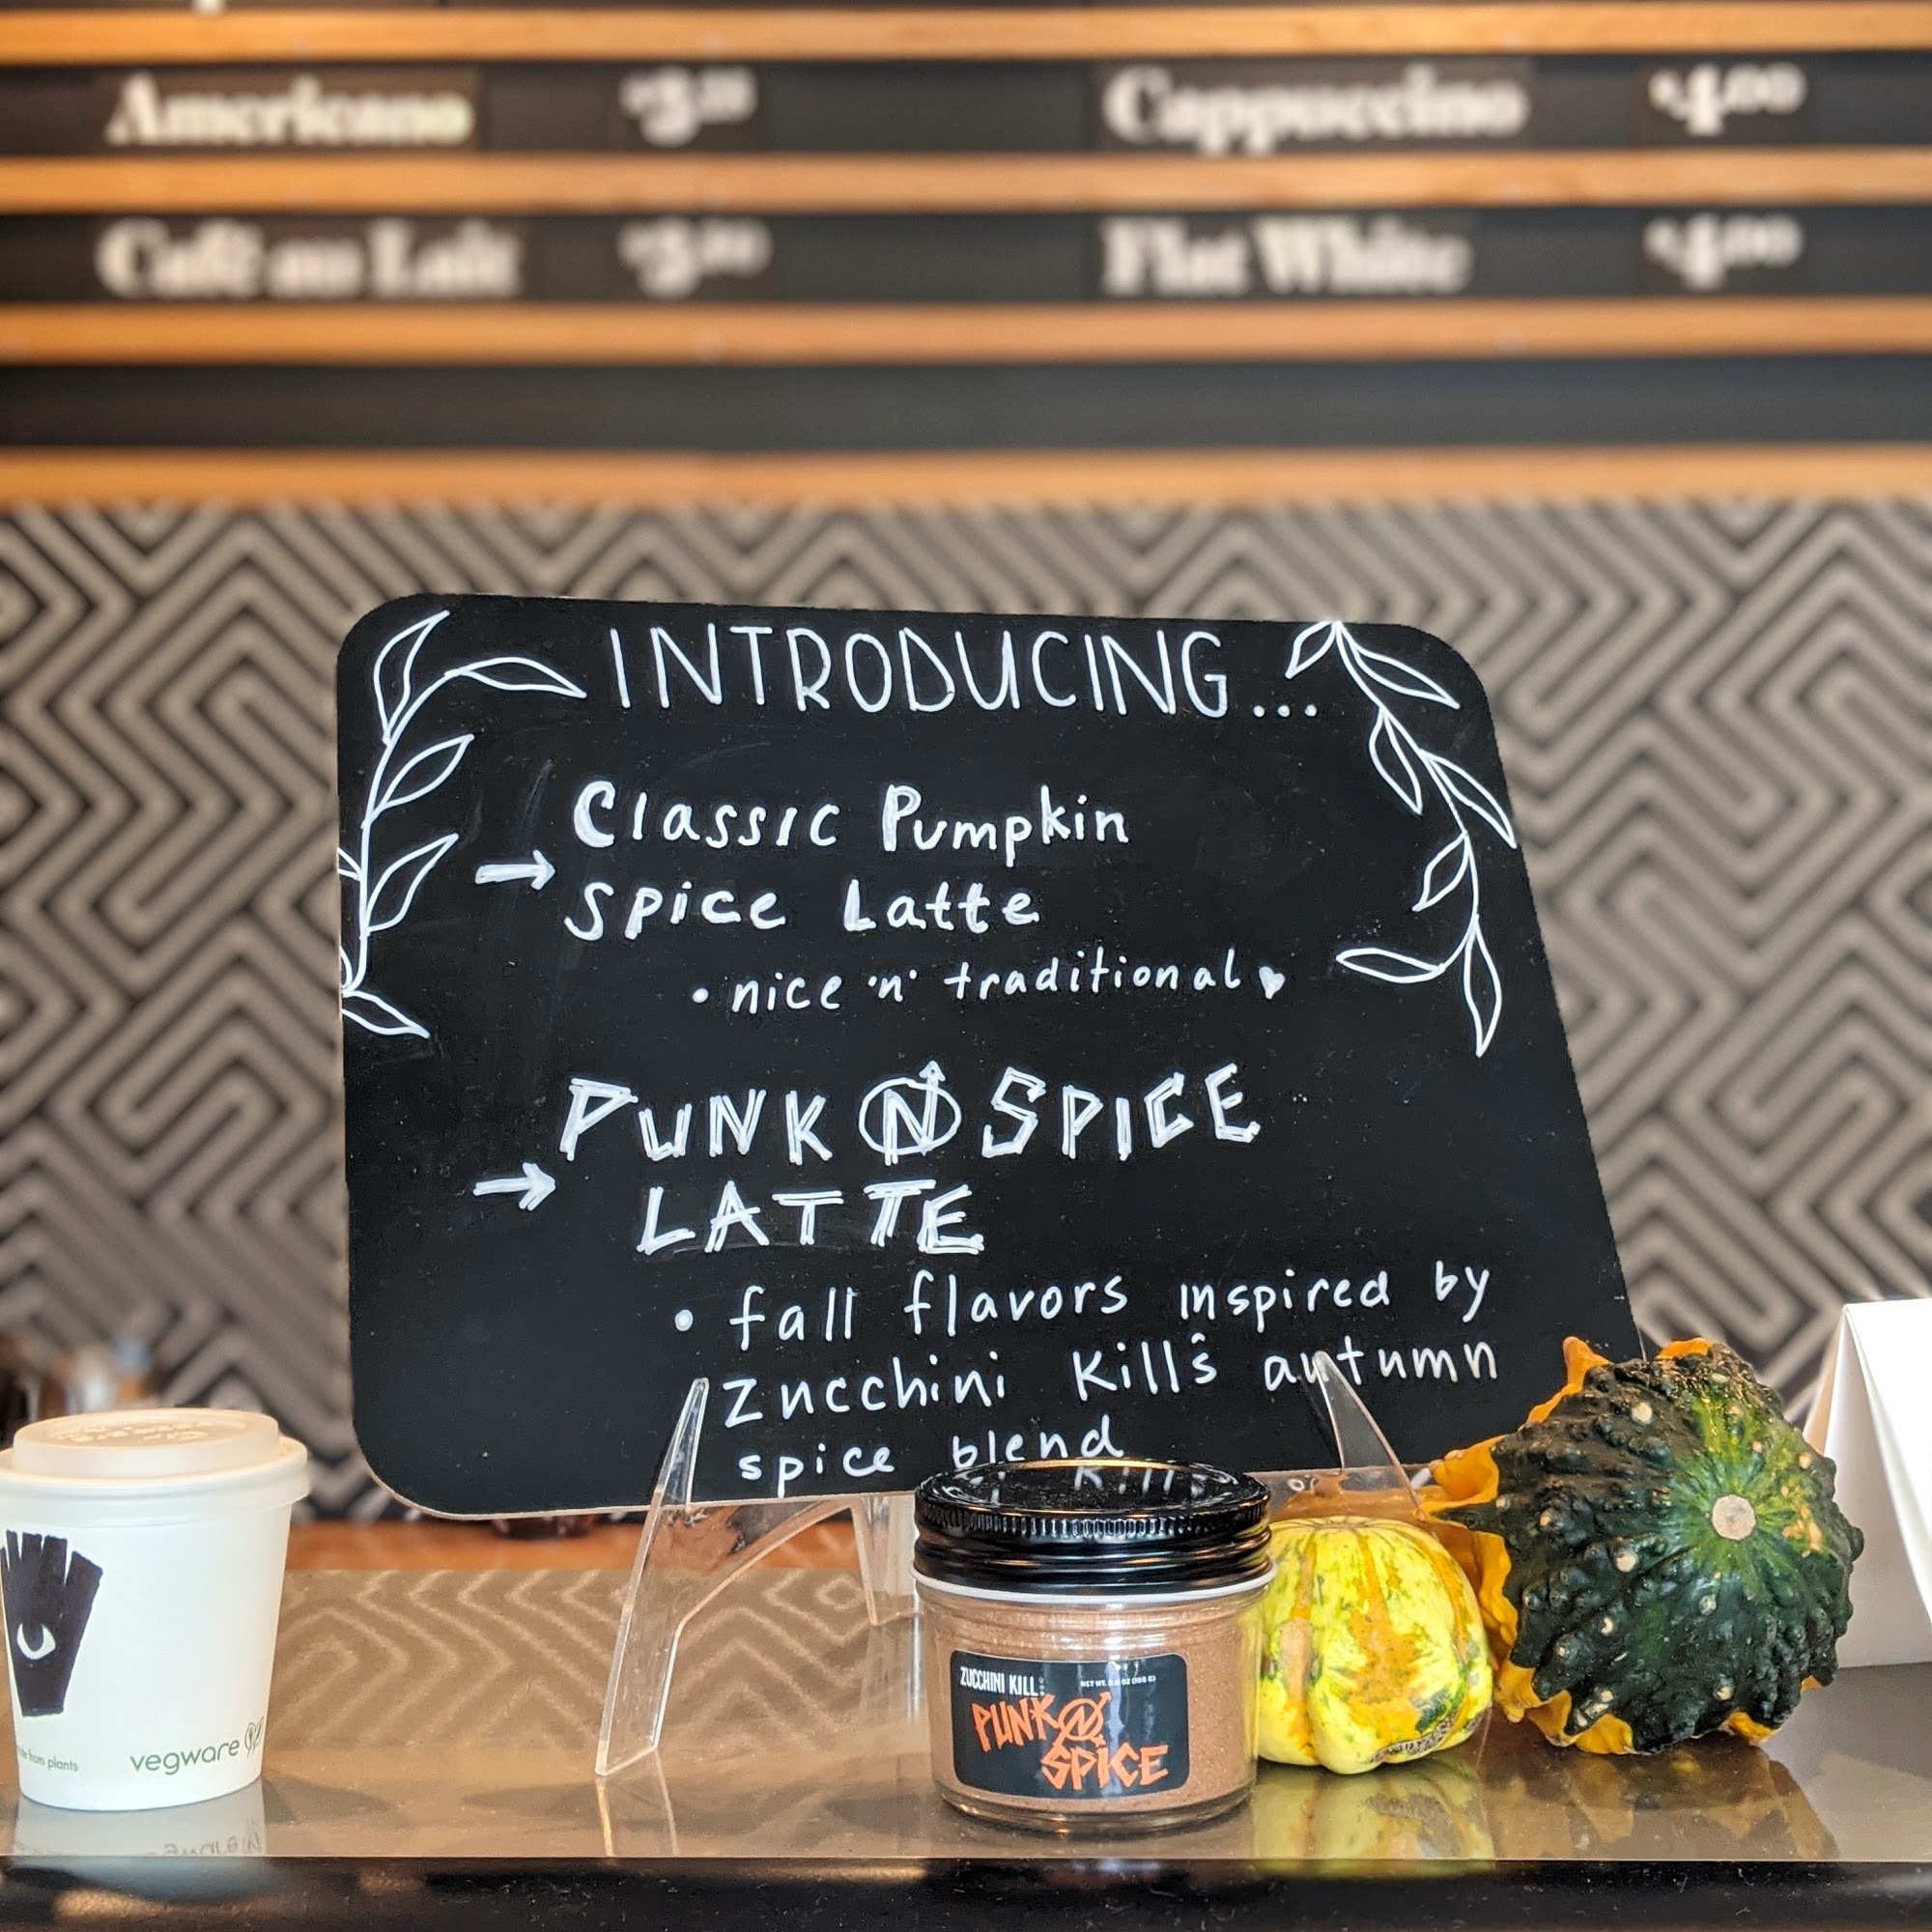 Americano
Cappuccino $4.00
Café au Lait
Flat White $4.00
INTRODUCING...
Classic Pumpkin
→
Spice Latte
• nice 'n' traditional ♥
PUNK N SPICE
→
LATTE
• fall flavors inspired by
Zucchini Kill's autumn
spice blend
ZUCCHINI KILL
NET WT.
PUNK N
SPICE
from plants
vegware